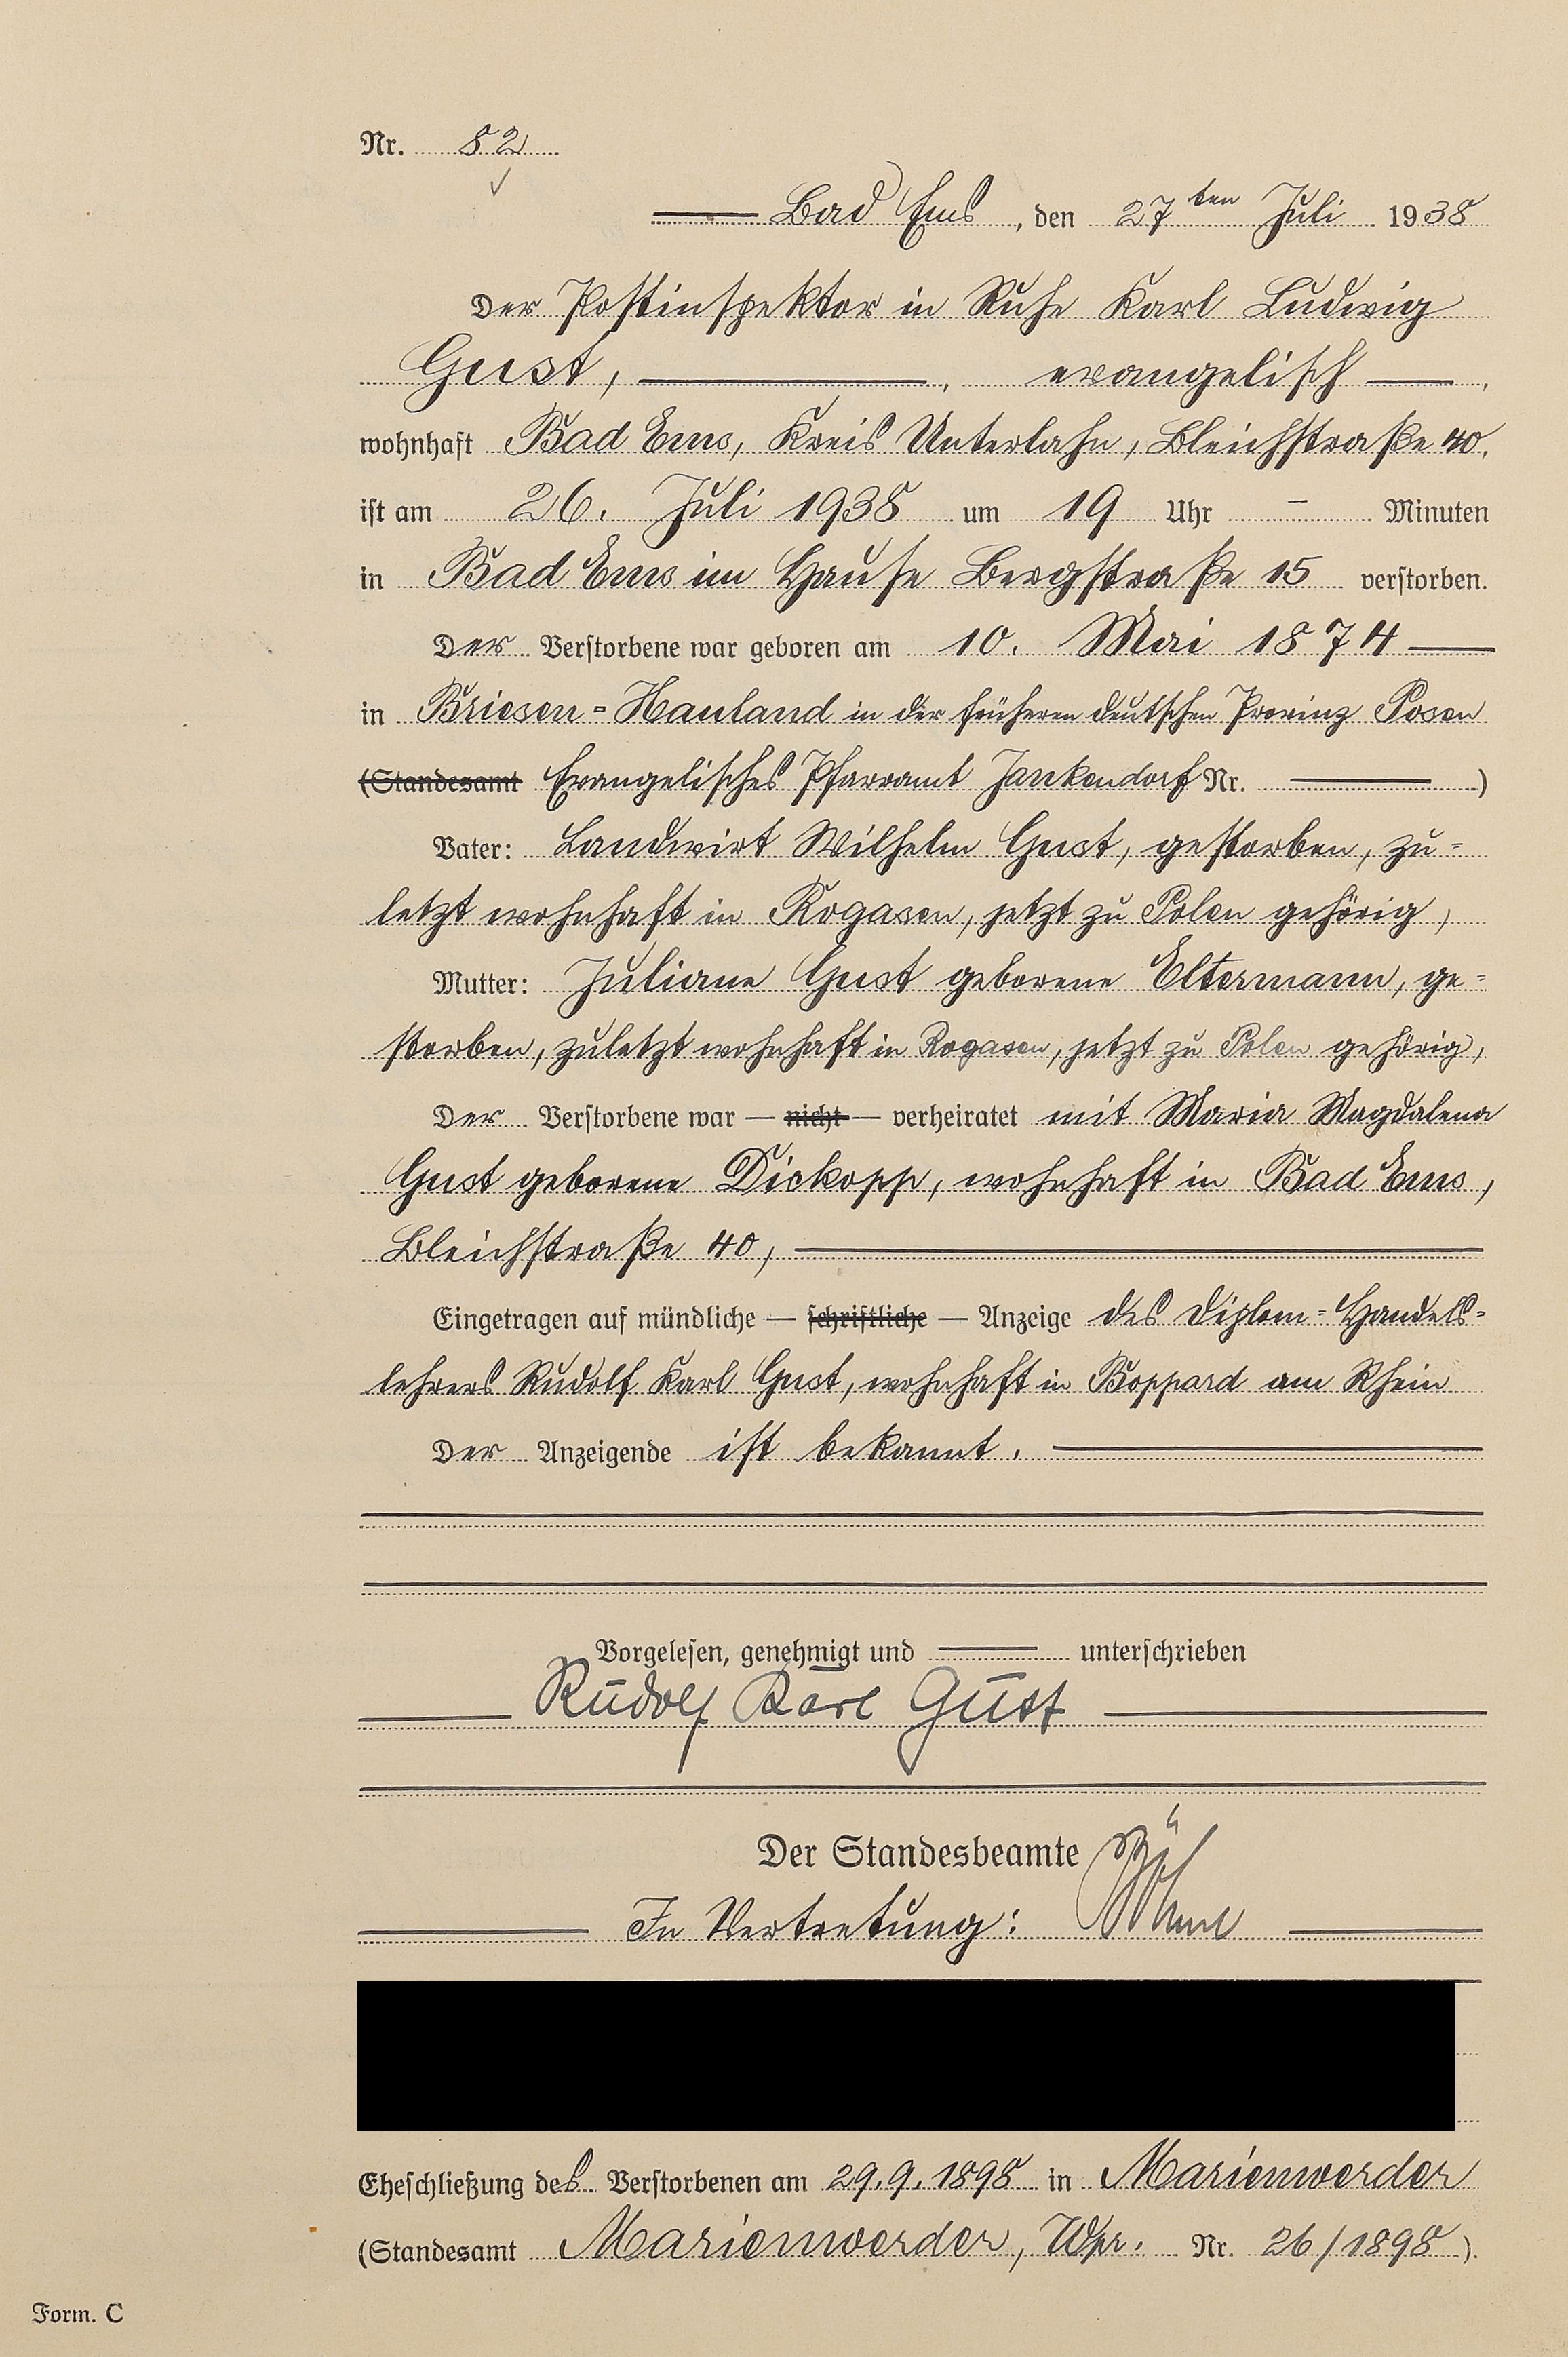 Nr. 82
Bad Ems, den 27ten Juli 1938
Der Postinspektor in Ruhe Karl Ludwig
Gust, evangelisch,
wohnhaft Bad Ems, Kreis Unterlahn, Bleichstraße 40,
ist am 26. Juli 1938 um 19 Uhr – Minuten
in Bad Ems im Hause Bergstraße 15 verstorben.
Der Verstorbene war geboren am 10. Mai 1874
in Briesen-Hauland in der früheren deutschen Provinz Posen
(Standesamt Evangelisches Pfarramt Jankendorf Nr. )
Vater: Landwirt Wilhelm Gust, gestorben, zu=
letzt wohnhaft in Rogasen, jetzt zu Polen gehörig,
Mutter: Juliane Gust geborene Eltermann, ge=
storben, zuletzt wohnhaft in Rogasen, jetzt zu Polen gehörig,
Der Verstorbene war — nicht — verheiratet mit Maria Magdalena
Gust geborene Dickopp, wohnhaft in Bad Ems,
Bleichstraße 40,
Eingetragen auf mündliche — schriftliche — Anzeige des Diplom=Handels=
lehrers Rudolf Karl Gust, wohnhaft in Boppard am Rhein
Der Anzeigende ist bekannt.
Vorgelesen, genehmigt und unterschrieben
Rudolf Karl Gust
Der Standesbeamte
In Vertretung:
Eheschließung des Verstorbenen am 29.9.1898 in Marienwerder
(Standesamt Marienwerder, Wpr. Nr. 26/1898).
Form. C